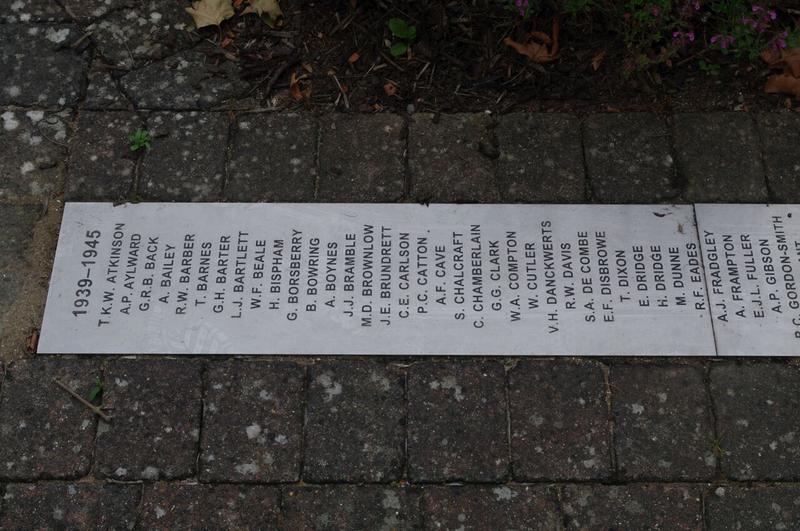 1939–1945
T.K.W. ATKINSON
A.P. AYLWARD
G.R.B. BACK
A. BAILEY
R.W. BARBER
T. BARNES
G.H. BARTER
L.J. BARTLETT
W.F. BEALE
H. BISPHAM
G. BORSBERRY
B. BOWRING
A. BOYNES
J.J. BRAMBLE
M.D. BROWNLOW
J.E. BRUNDRETT
C.E. CARLSON
P.C. CATTON
A.F. CAVE
S. CHALCRAFT
C. CHAMBERLAIN
G.G. CLARK
W.A. COMPTON
W. CUTLER
V.H. DANCKWERTS
R.W. DAVIS
S.A. DE COMBE
E.F. DISBROWE
T. DIXON
E. DRIDGE
H. DRIDGE
M. DUNNE
R.F. EADES
A.J. FRADGLEY
A. FRAMPTON
E.J.L. FULLER
A.P. GIBSON
P.C. GORDON-SMITH